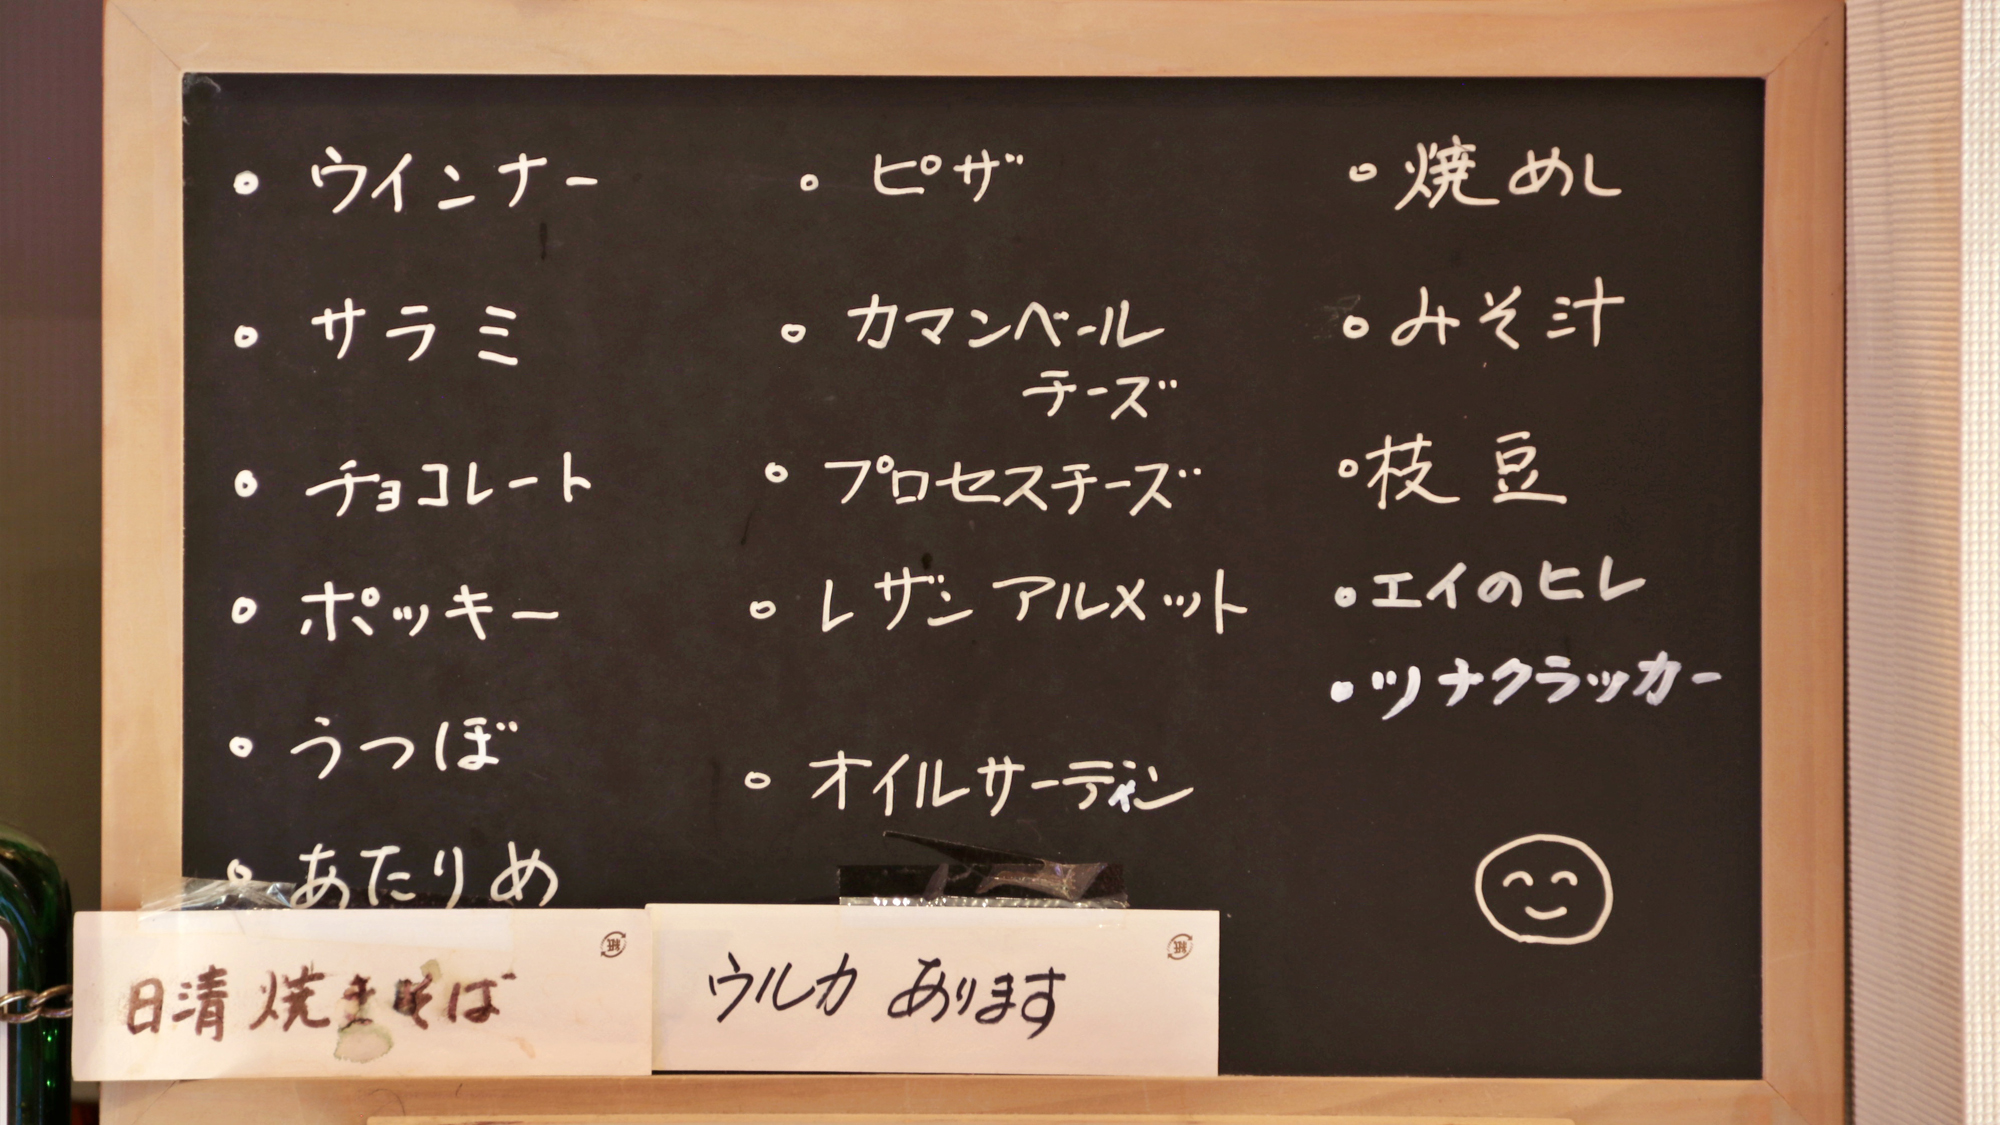 • ウインナー
• サラミ
• チョコレート
• ポッキー
• うつぼ
• あたりめ
• ピザ
• カマンベール
チーズ
• プロセスチーズ
• レザンアルメット
• オイルサーディン
• 焼めし
• みそ汁
• 枝豆
• エイのヒレ
• ツナクラッカー
日清 焼きそば
紙
ウルカ あります
紙